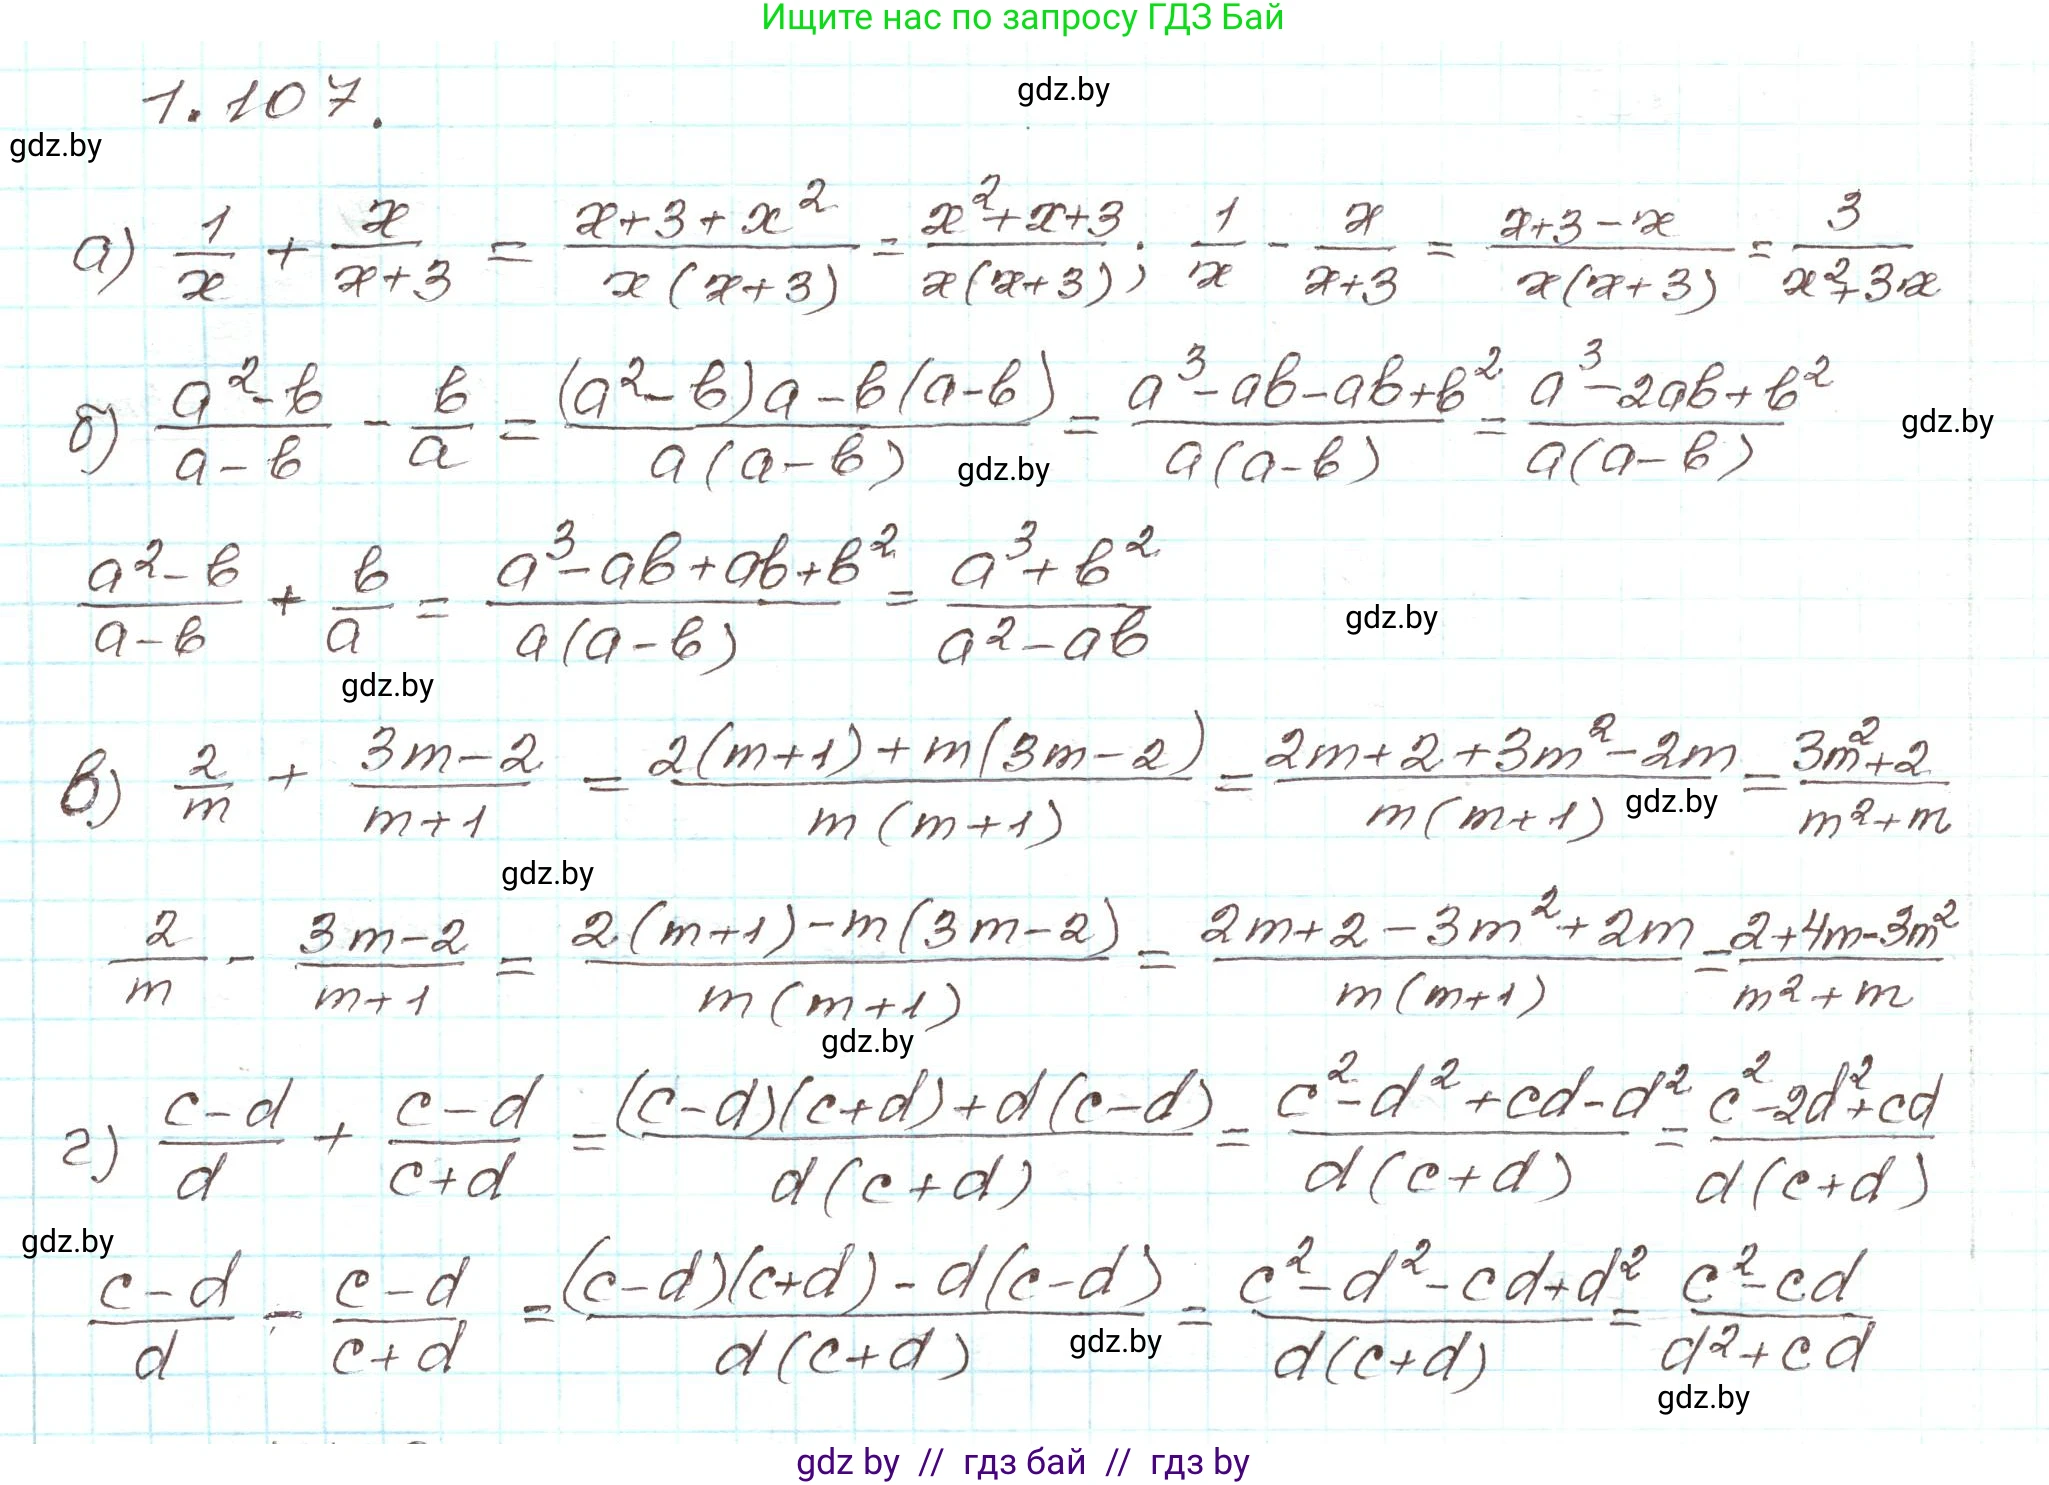 Ищите нас по запросу ГДЗ Бай
1.107.
gdz.by
gdz.by
а) 1/x + x/(x+3) = (x+3+x²)/(x(x+3)) = (x²+x+3)/(x(x+3)); 1/x - x/(x+3) = (x+3-x)/(x(x+3)) = 3/(x²+3x)
б) (a²-b)/(a-b) - b/a = ((a²-b)a-b(a-b))/(a(a-b)) = (a³-ab-ab+b²)/(a(a-b)) = (a³-2ab+b²)/(a(a-b))
gdz.by
gdz.by
(a²-b)/(a-b) + b/a = (a³-ab+ab+b²)/(a(a-b)) = (a³+b²)/(a²-ab)
gdz.by
gdz.by
в) 2/m + (3m-2)/(m+1) = (2(m+1)+m(3m-2))/(m(m+1)) = (2m+2+3m²-2m)/(m(m+1)) = (3m²+2)/(m²+m)
gdz.by
gdz.by
2/m - (3m-2)/(m+1) = (2(m+1)-m(3m-2))/(m(m+1)) = (2m+2-3m²+2m)/(m(m+1)) = (2+4m-3m²)/(m²+m)
gdz.by
г) (c-d)/d + (c-d)/(c+d) = ((c-d)(c+d)+d(c-d))/(d(c+d)) = (c²-d²+cd-d²)/(d(c+d)) = (c²-2d²+cd)/(d(c+d))
gdz.by
(c-d)/d - (c-d)/(c+d) = ((c-d)(c+d)-d(c-d))/(d(c+d)) = (c²-d²-cd+d²)/(d(c+d)) = (c²-cd)/(d²+cd)
gdz.by
gdz.by
gdz by // гдз бай // гдз by